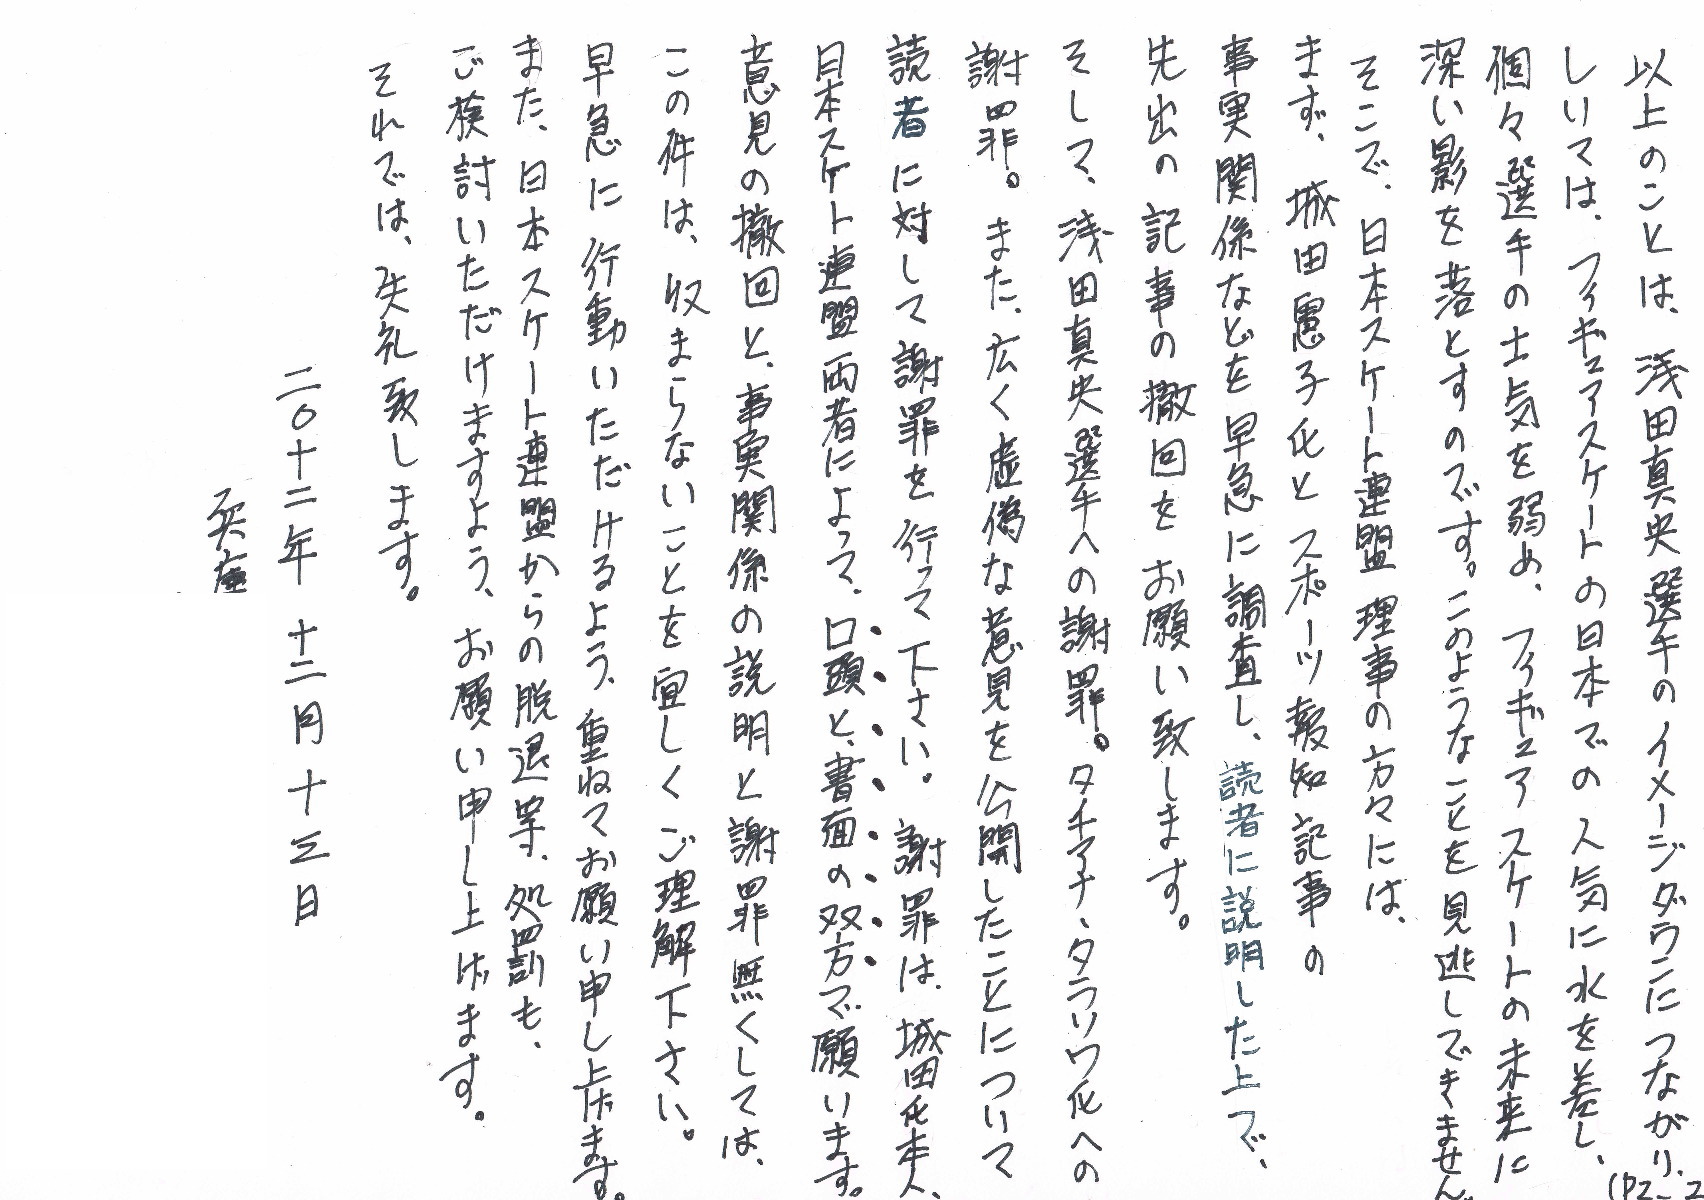 以上のことは、浅田真央選手のイメージダウンにつながり、
しいては、フィギュアスケートの日本での人気に水を差し、
個々選手の士気を弱め、フィギュアスケートの未来に
深い影を落とすのです。このようなことを見逃しできません。
そこで、日本スケート連盟理事の方々には、
まず、城田憲子氏とスポーツ報知記事の
事実関係などを早急に調査し、読者に説明した上で、
先出の記事の撤回をお願い致します。
そして、浅田真央選手への謝罪。タチアナ・タラソワ氏への
謝罪。また、広く虚偽な意見を公開したことについて
読者に対して謝罪を行って下さい。謝罪は、城田氏本人、
日本スケト連盟両者によって、口頭と、書面の双方で願います。
意見の撤回と、事実関係の説明と謝罪無くしては、
この件は、収まらないことを宜しくご理解下さい。
早急に行動いただけるよう、重ねてお願い申し上げます。
また、日本スケート連盟からの脱退等、処罰も、
ご検討いただけますよう、お願い申し上げます。
それでは、失礼致します。
二〇十二年 十二月十三日
兵庫
(P2-2